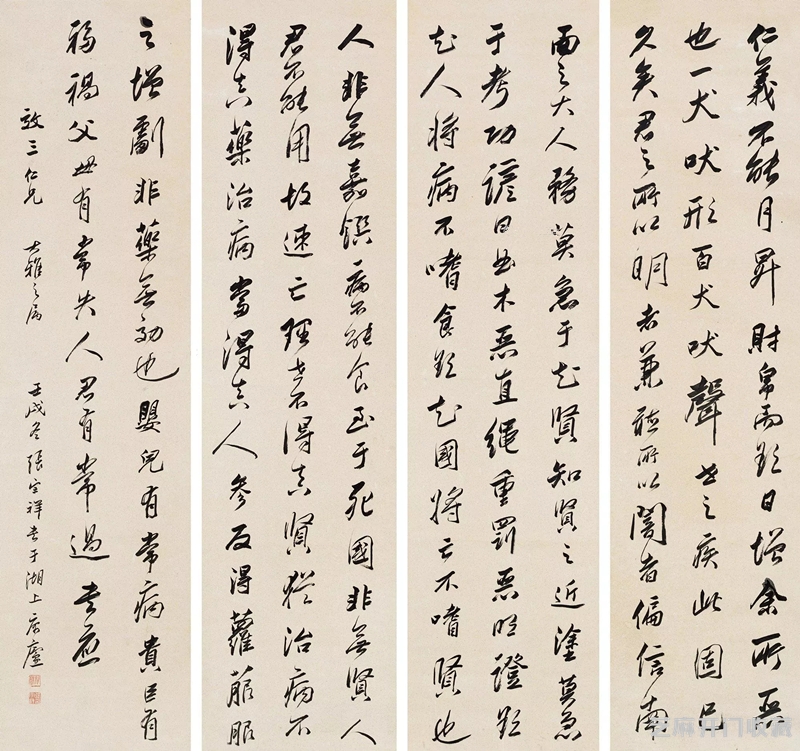 仁義不能月昇財帛而欲日增余所惡
也一犬吠形百犬吠聲世之疾此固已
久矣君之所以明者兼聽所以闇者偏信南
面之大人務莫急于知賢知賢之近塗莫急
于考功諺曰曲木惡直繩重罰惡明證欲
知人將病不嗜食欲知國將亡不嗜賢也
人非無嘉饌病不能食至于死國非無賢人
君不能用故速亡理世不得真賢猶治病不
得真藥治病當得真人參反得蘿菔服
之增劇非藥無効也嬰兒有常病貴臣有
禍父母有常失人君有常過書應
三仁兄 大雅之屬 壬戌冬張宗祥書于湖上廬
芝麻开门收藏